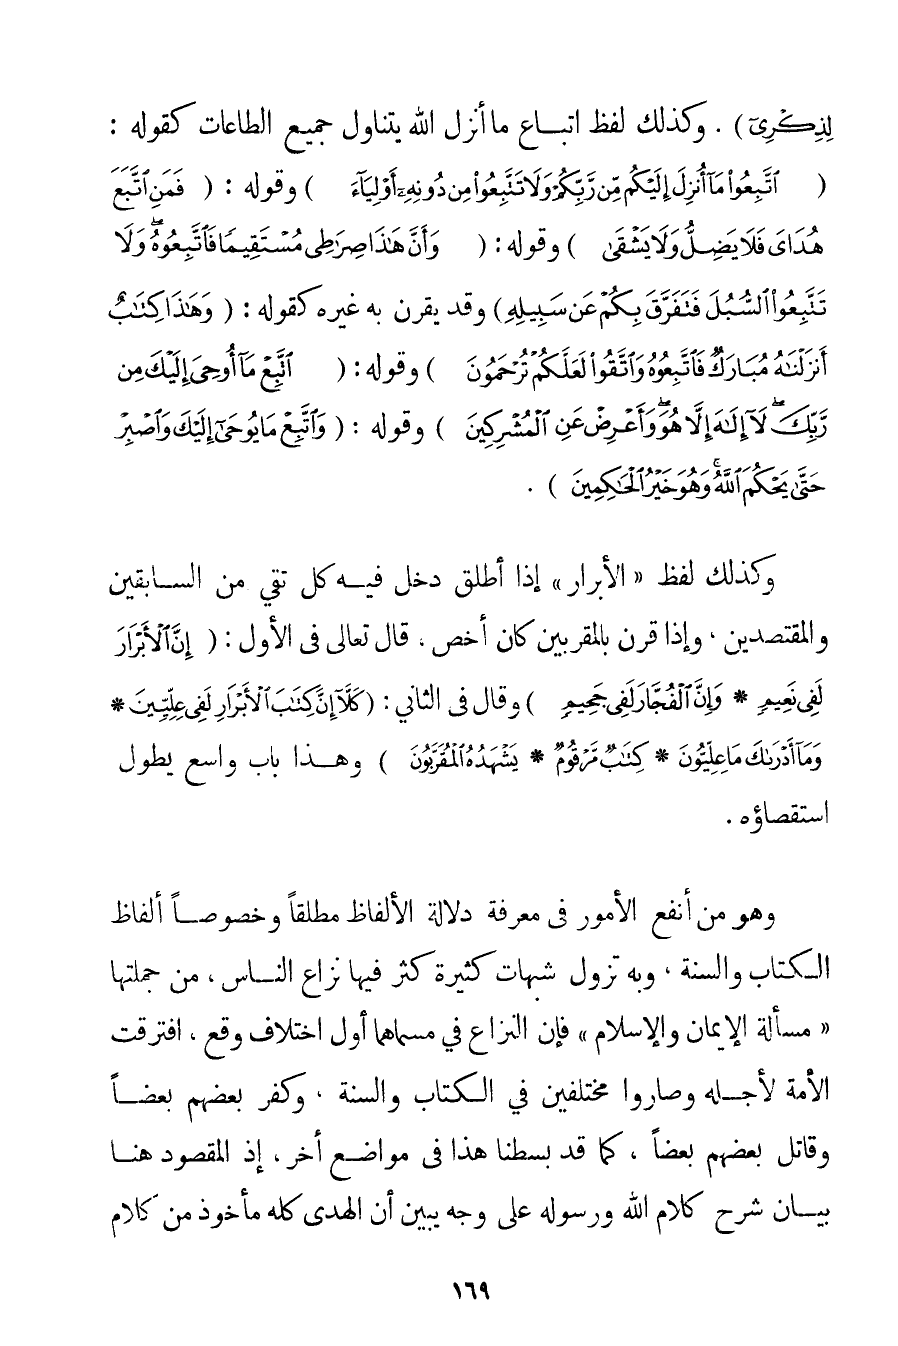 لِذِكْرِىٓ ) . وكذلك لفظ اتبـاع ما أنزل الله يتناول جميع الطاعات كقوله :
( ٱتَّبِعُوا۟ مَآ أُنزِلَ إِلَيْكُم مِّن رَّبِّكُمْ وَلَا تَتَّبِعُوا۟ مِن دُونِهِۦٓ أَوْلِيَآءَ ) وقوله : ( فَمَنِ ٱتَّبَعَ
هُدَاىَ فَلَا يَضِلُّ وَلَا يَشْقَىٰ ) وقوله : ( وَأَنَّ هَٰذَا صِرَٰطِى مُسْتَقِيمًا فَٱتَّبِعُوهُ ۖ وَلَا
تَتَّبِعُوا۟ ٱلسُّبُلَ فَتَفَرَّقَ بِكُمْ عَن سَبِيلِهِ ) وقد يقرن به غيره كقوله : ( وَهَٰذَا كِتَٰبٌ
أَنزَلْنَٰهُ مُبَارَكٌ فَٱتَّبِعُوهُ وَٱتَّقُوا۟ لَعَلَّكُمْ تُرْحَمُونَ ) وقوله : ( ٱتَّبِعْ مَآ أُوحِىَ إِلَيْكَ مِن
رَّبِّكَ ۖ لَآ إِلَٰهَ إِلَّا هُوَ ۖ وَأَعْرِضْ عَنِ ٱلْمُشْرِكِينَ ) وقوله : ( وَٱتَّبِعْ مَا يُوحَىٰٓ إِلَيْكَ وَٱصْبِرْ
حَتَّىٰ يَحْكُمَ ٱللَّهُ ۚ وَهُوَ خَيْرُ ٱلْحَٰكِمِينَ ) .
وكذلك لفظ « الأبرار » إذا أطلق دخل فيـه كل تقي من السـابقين
والمقتصدين ، وإذا قرن بالمقربين كان أخص ، قال تعالى فى الأول : ( إِنَّ ٱلْأَبْرَارَ
لَفِى نَعِيمٍ * وَإِنَّ ٱلْفُجَّارَ لَفِى جَحِيمٍ ) وقال فى الثاني : ( كَلَّآ إِنَّ كِتَٰبَ ٱلْأَبْرَارِ لَفِى عِلِّيِّينَ *
وَمَآ أَدْرَىٰكَ مَا عِلِّيُّونَ * كِتَٰبٌ مَّرْقُومٌ * يَشْهَدُهُ ٱلْمُقَرَّبُونَ ) وهـذا باب واسع يطول
استقصاؤه .
وهو من أنفع الأمور فى معرفة دلالة الألفاظ مطلقاً وخصوصـاً ألفاظ
الـكتاب والسنة ، وبه تزول شبهات كثيرة كثر فيها نزاع النـاس ، من جملتها
« مسألة الإيمان والإسلام » فإن النزاع في مسماهما أول اختلاف وقع ، افترقت
الأمة لأجـله وصاروا مختلفين في الـكتاب والسنة ، وكفر بعضهم بعضـاً
وقاتل بعضهم بعضاً ، كما قد بسطنا هذا فى مواضـع أخر ، إذ المقصود هنـا
بيـان شرح كلام الله ورسوله على وجه يبين أن الهدى كله مأخوذ من كلام
١٦٩